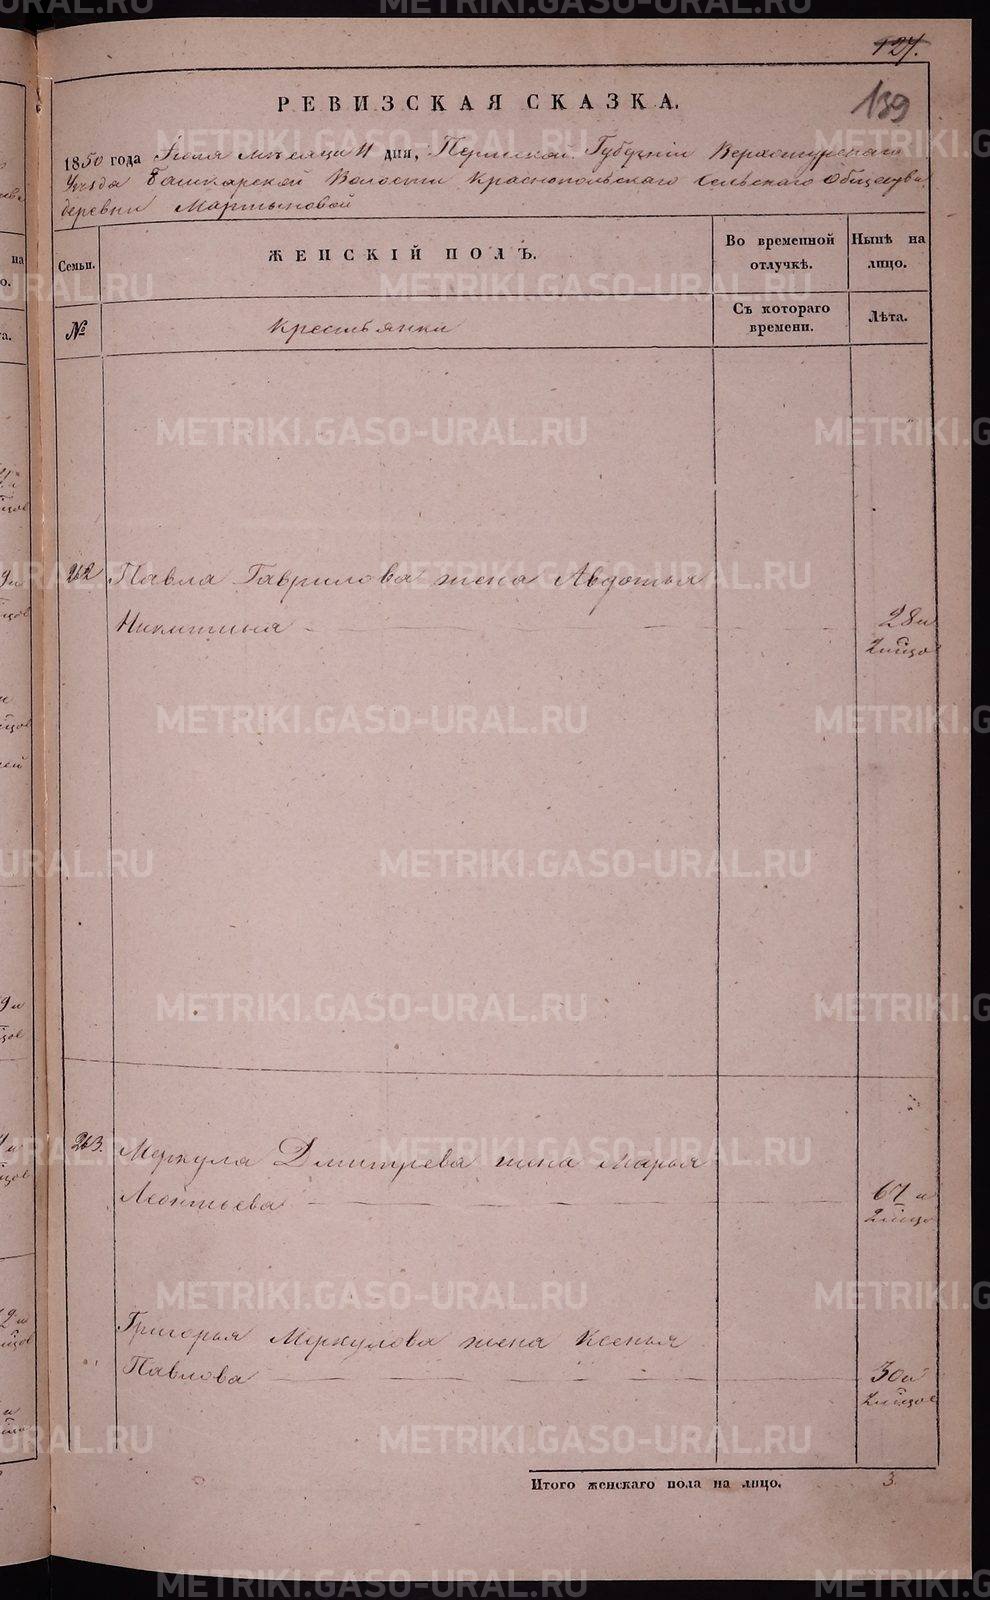 127.
139
РЕВИЗСКАЯ СКАЗКА.
1850 года Июля месяца 11 дня, Пермской Губерніи Верхотурскаго
Уезда Башкарской Волости Краснопольскаго Сельскаго Общества
деревни Мартыновой
Семьи.
ЖЕНСКІЙ ПОЛЪ.
Во временной отлучкѣ.
Нынѣ на лицо.
№
Крестьянки
Съ котораго времени.
Лѣта.
262 Павла Гаврилова жена Авдотья
Никитина 28 и
2 мѣсяцо
263. Меркула Дмитрева жена Марья
Леонтьева 67 и
2 мѣсяцо
Григорья Меркулова жена Ксенья
Павлова 30 и
2 мѣсяцо
Итого женскаго пола на лицо. 3.
METRIKI.GASO-URAL.RU